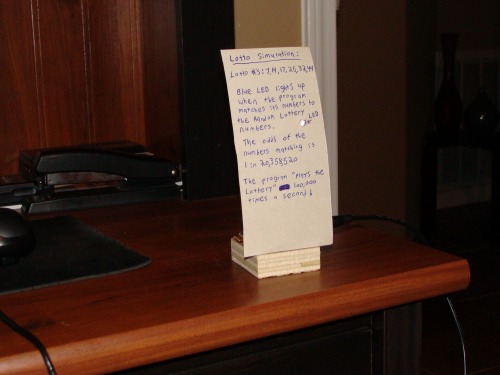 Lotto Simulation:
Lotto #'s: 7, 14, 17, 25, 32, 44
Blue LED lights up
when the program
matches its numbers to
the Random Lottery
numbers.
LED
The odds of the
numbers matching is
1 in 20,358520
The program "plays the
lottery" 100,000
times a second!